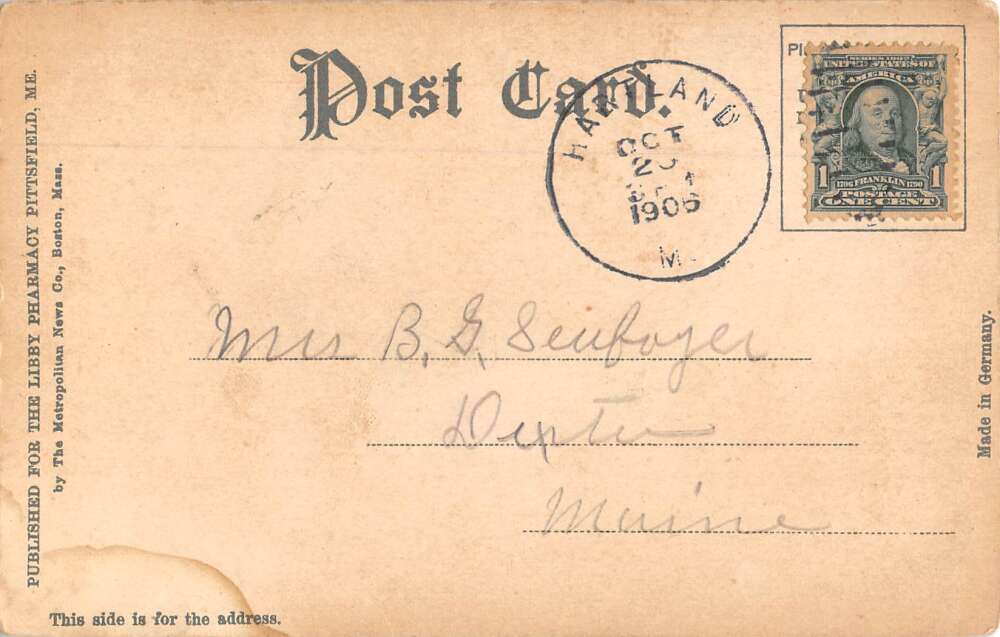 Post Card.
HARTLAND
OCT
1906
M
SERIES 1902
UNITED STATES OF
AMERICA
1 1
1706 FRANKLIN 1790
POSTAGE
ONE CENT
Mrs B. G.
Dexter
Maine
PUBLISHED FOR THE LIBBY PHARMACY PITTSFIELD, ME.
by The Metropolitan News Co., Boston, Mass.
Made in Germany.
This side is for the address.